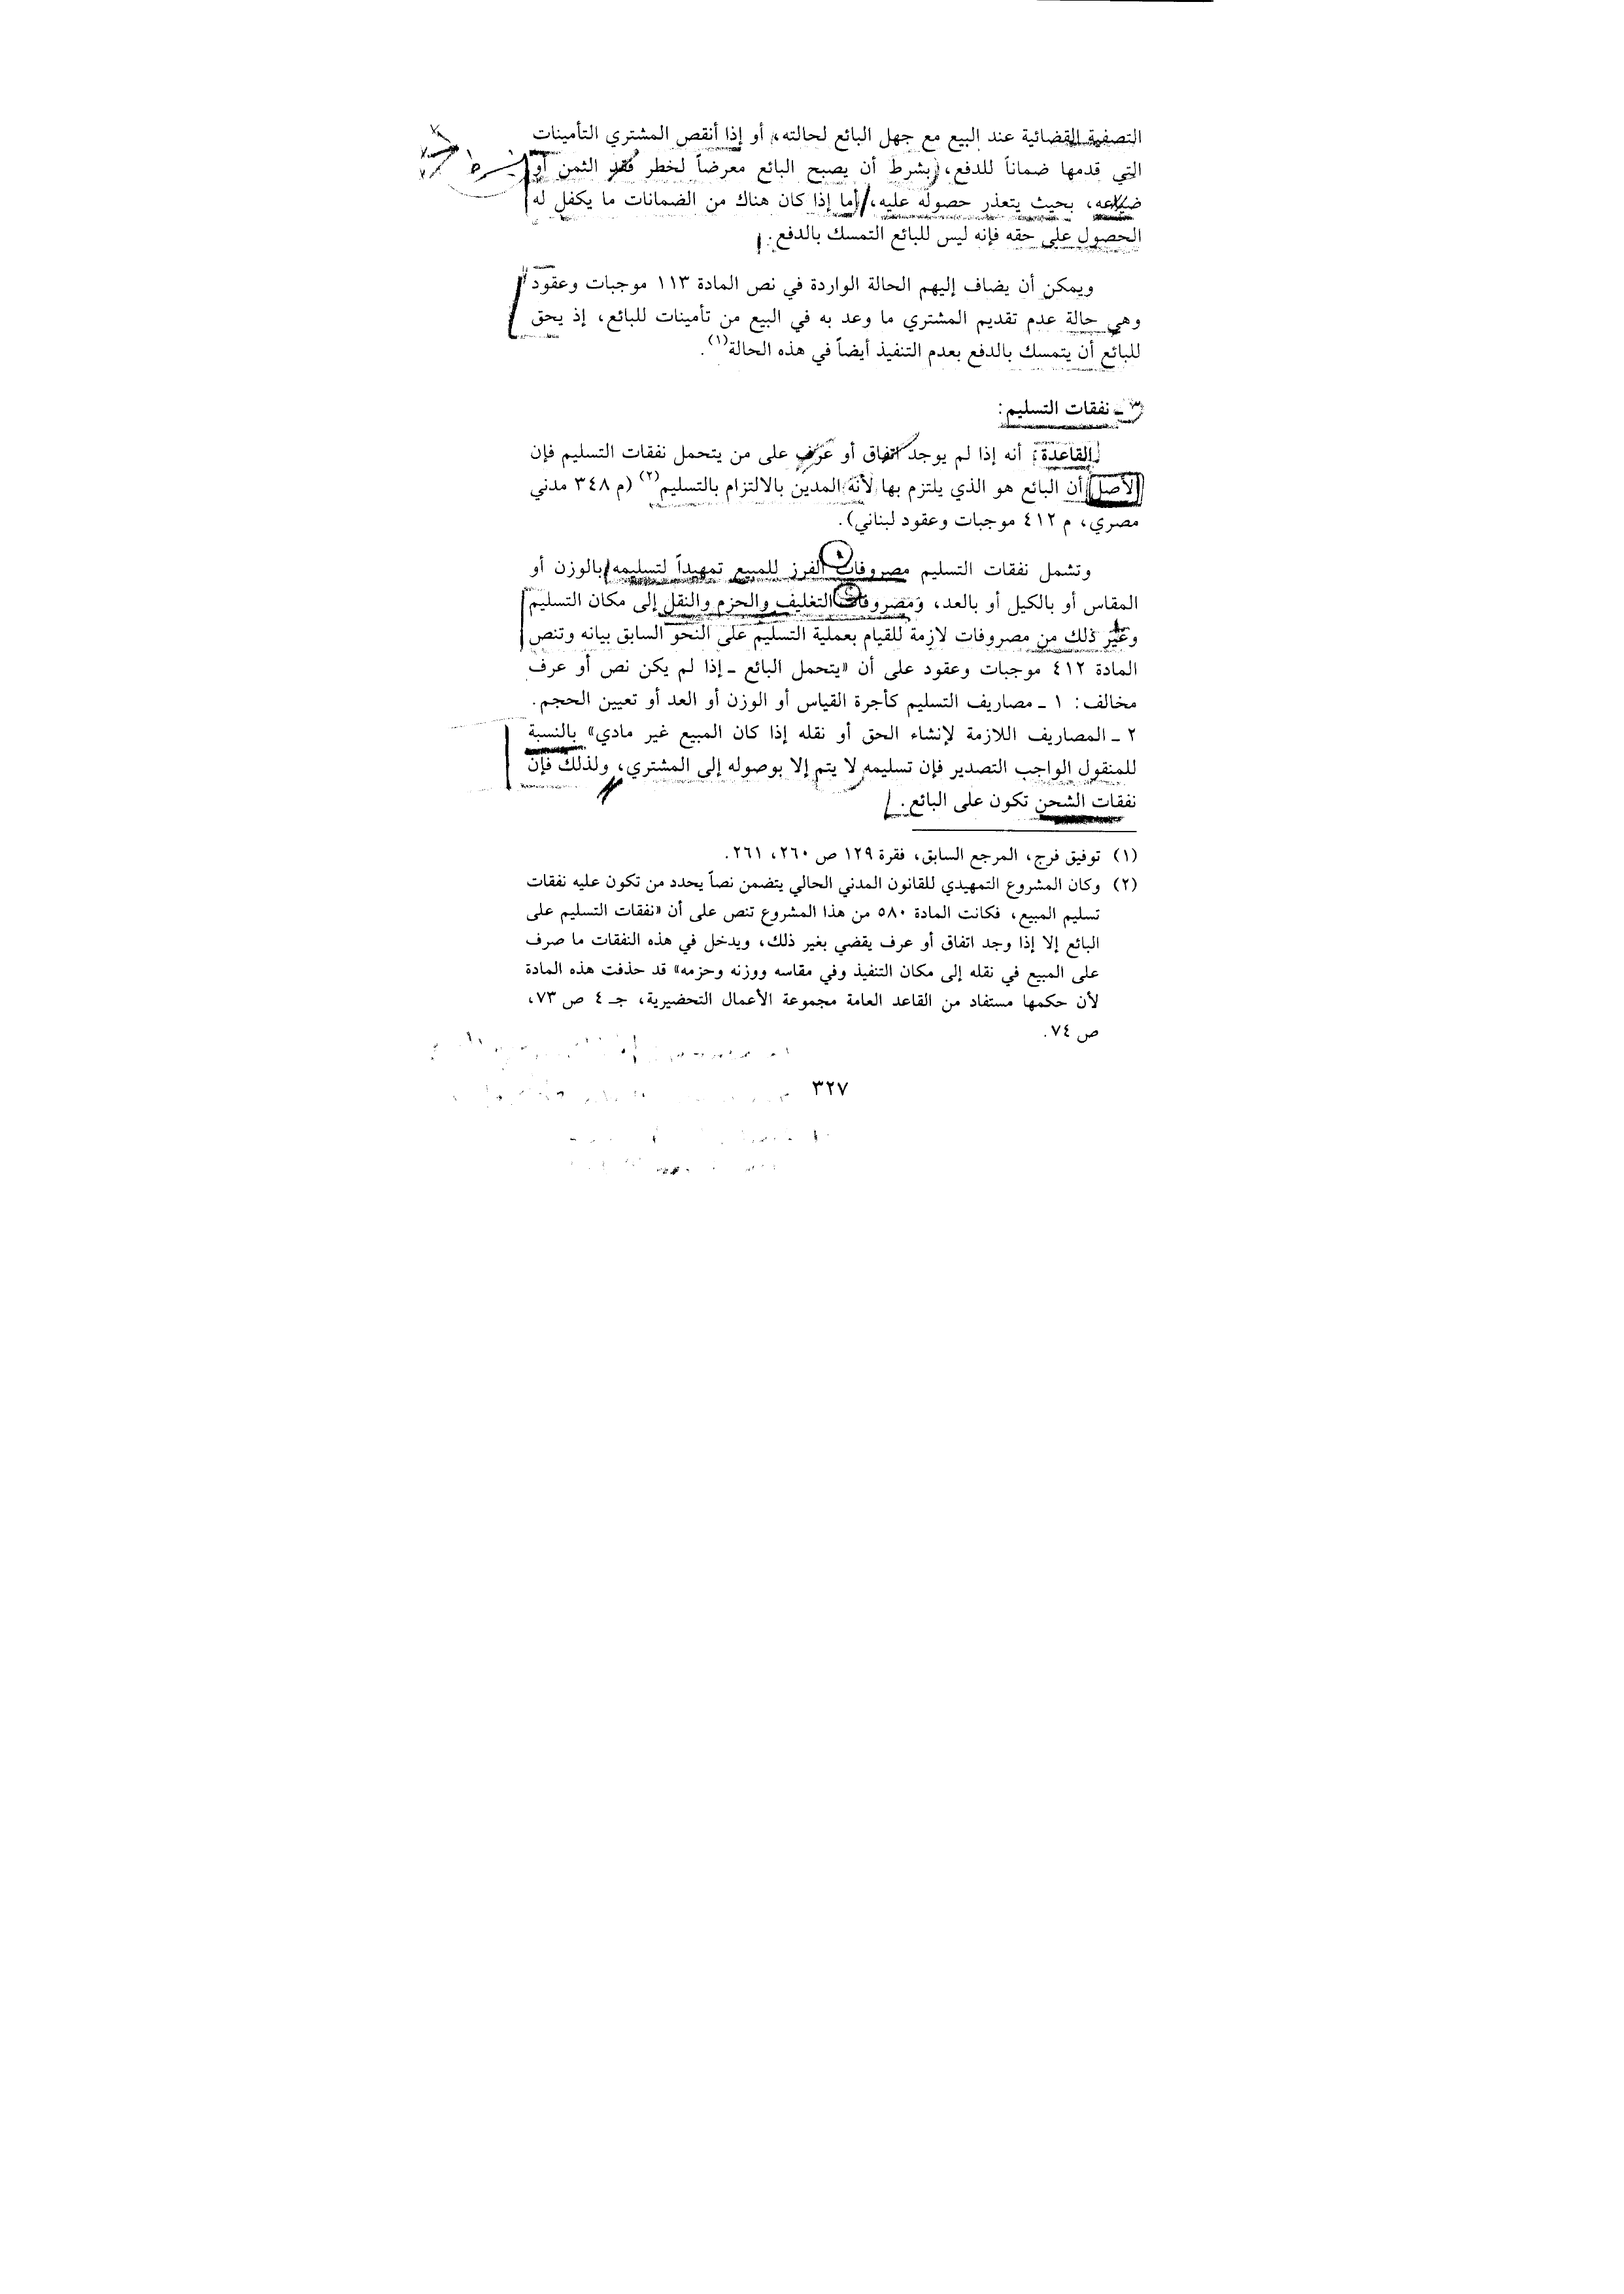 التصفية القضائية عند البيع مع جهل البائع لحالته، أو إذا أنقص المشتري التأمينات
التي قدمها ضماناً للدفع، بشرط أن يصبح البائع معرضاً لخطر فقد الثمن أو
ضياعه، بحيث يتعذر حصوله عليه، أما إذا كان هناك من الضمانات ما يكفل له
الحصول على حقه فإنه ليس للبائع التمسك بالدفع.
ويمكن أن يضاف إليهم الحالة الواردة في نص المادة ١١٣ موجبات وعقود
وهي حالة عدم تقديم المشتري ما وعد به في البيع من تأمينات للبائع، إذ يحق
للبائع أن يتمسك بالدفع بعدم التنفيذ أيضاً في هذه الحالة(١).
٣ ـ نفقات التسليم:
القاعدة: أنه إذا لم يوجد اتفاق أو عرف على من يتحمل نفقات التسليم فإن
الأصل أن البائع هو الذي يلتزم بها لأنه المدين بالالتزام بالتسليم(٢) (م ٣٤٨ مدني
مصري، م ٤١٢ موجبات وعقود لبناني).
وتشمل نفقات التسليم مصروفات الفرز للمبيع تمهيداً لتسليمه بالوزن أو
المقاس أو بالكيل أو بالعد، ومصروفات التغليف والحزم والنقل إلى مكان التسليم
وغير ذلك من مصروفات لازمة للقيام بعملية التسليم على النحو السابق بيانه وتنص
المادة ٤١٢ موجبات وعقود على أن «يتحمل البائع ـ إذا لم يكن نص أو عرف
مخالف: ١ ـ مصاريف التسليم كأجرة القياس أو الوزن أو العد أو تعيين الحجم.
٢ ـ المصاريف اللازمة لإنشاء الحق أو نقله إذا كان المبيع غير مادي» بالنسبة
للمنقول الواجب التصدير فإن تسليمه لا يتم إلا بوصوله إلى المشتري، ولذلك فإن
نفقات الشحن تكون على البائع.
(١) توفيق فرج، المرجع السابق، فقرة ١٢٩ ص ٢٦٠، ٢٦١.
(٢) وكان المشروع التمهيدي للقانون المدني الحالي يتضمن نصاً يحدد من تكون عليه نفقات
تسليم المبيع، فكانت المادة ٥٨٠ من هذا المشروع تنص على أن «نفقات التسليم على
البائع إلا إذا وجد اتفاق أو عرف يقضي بغير ذلك، ويدخل في هذه النفقات ما صرف
على المبيع في نقله إلى مكان التنفيذ وفي مقاسه ووزنه وحزمه» قد حذفت هذه المادة
لأن حكمها مستفاد من القاعد العامة مجموعة الأعمال التحضيرية، جـ ٤ ص ٧٣،
ص ٧٤.
٣٢٧